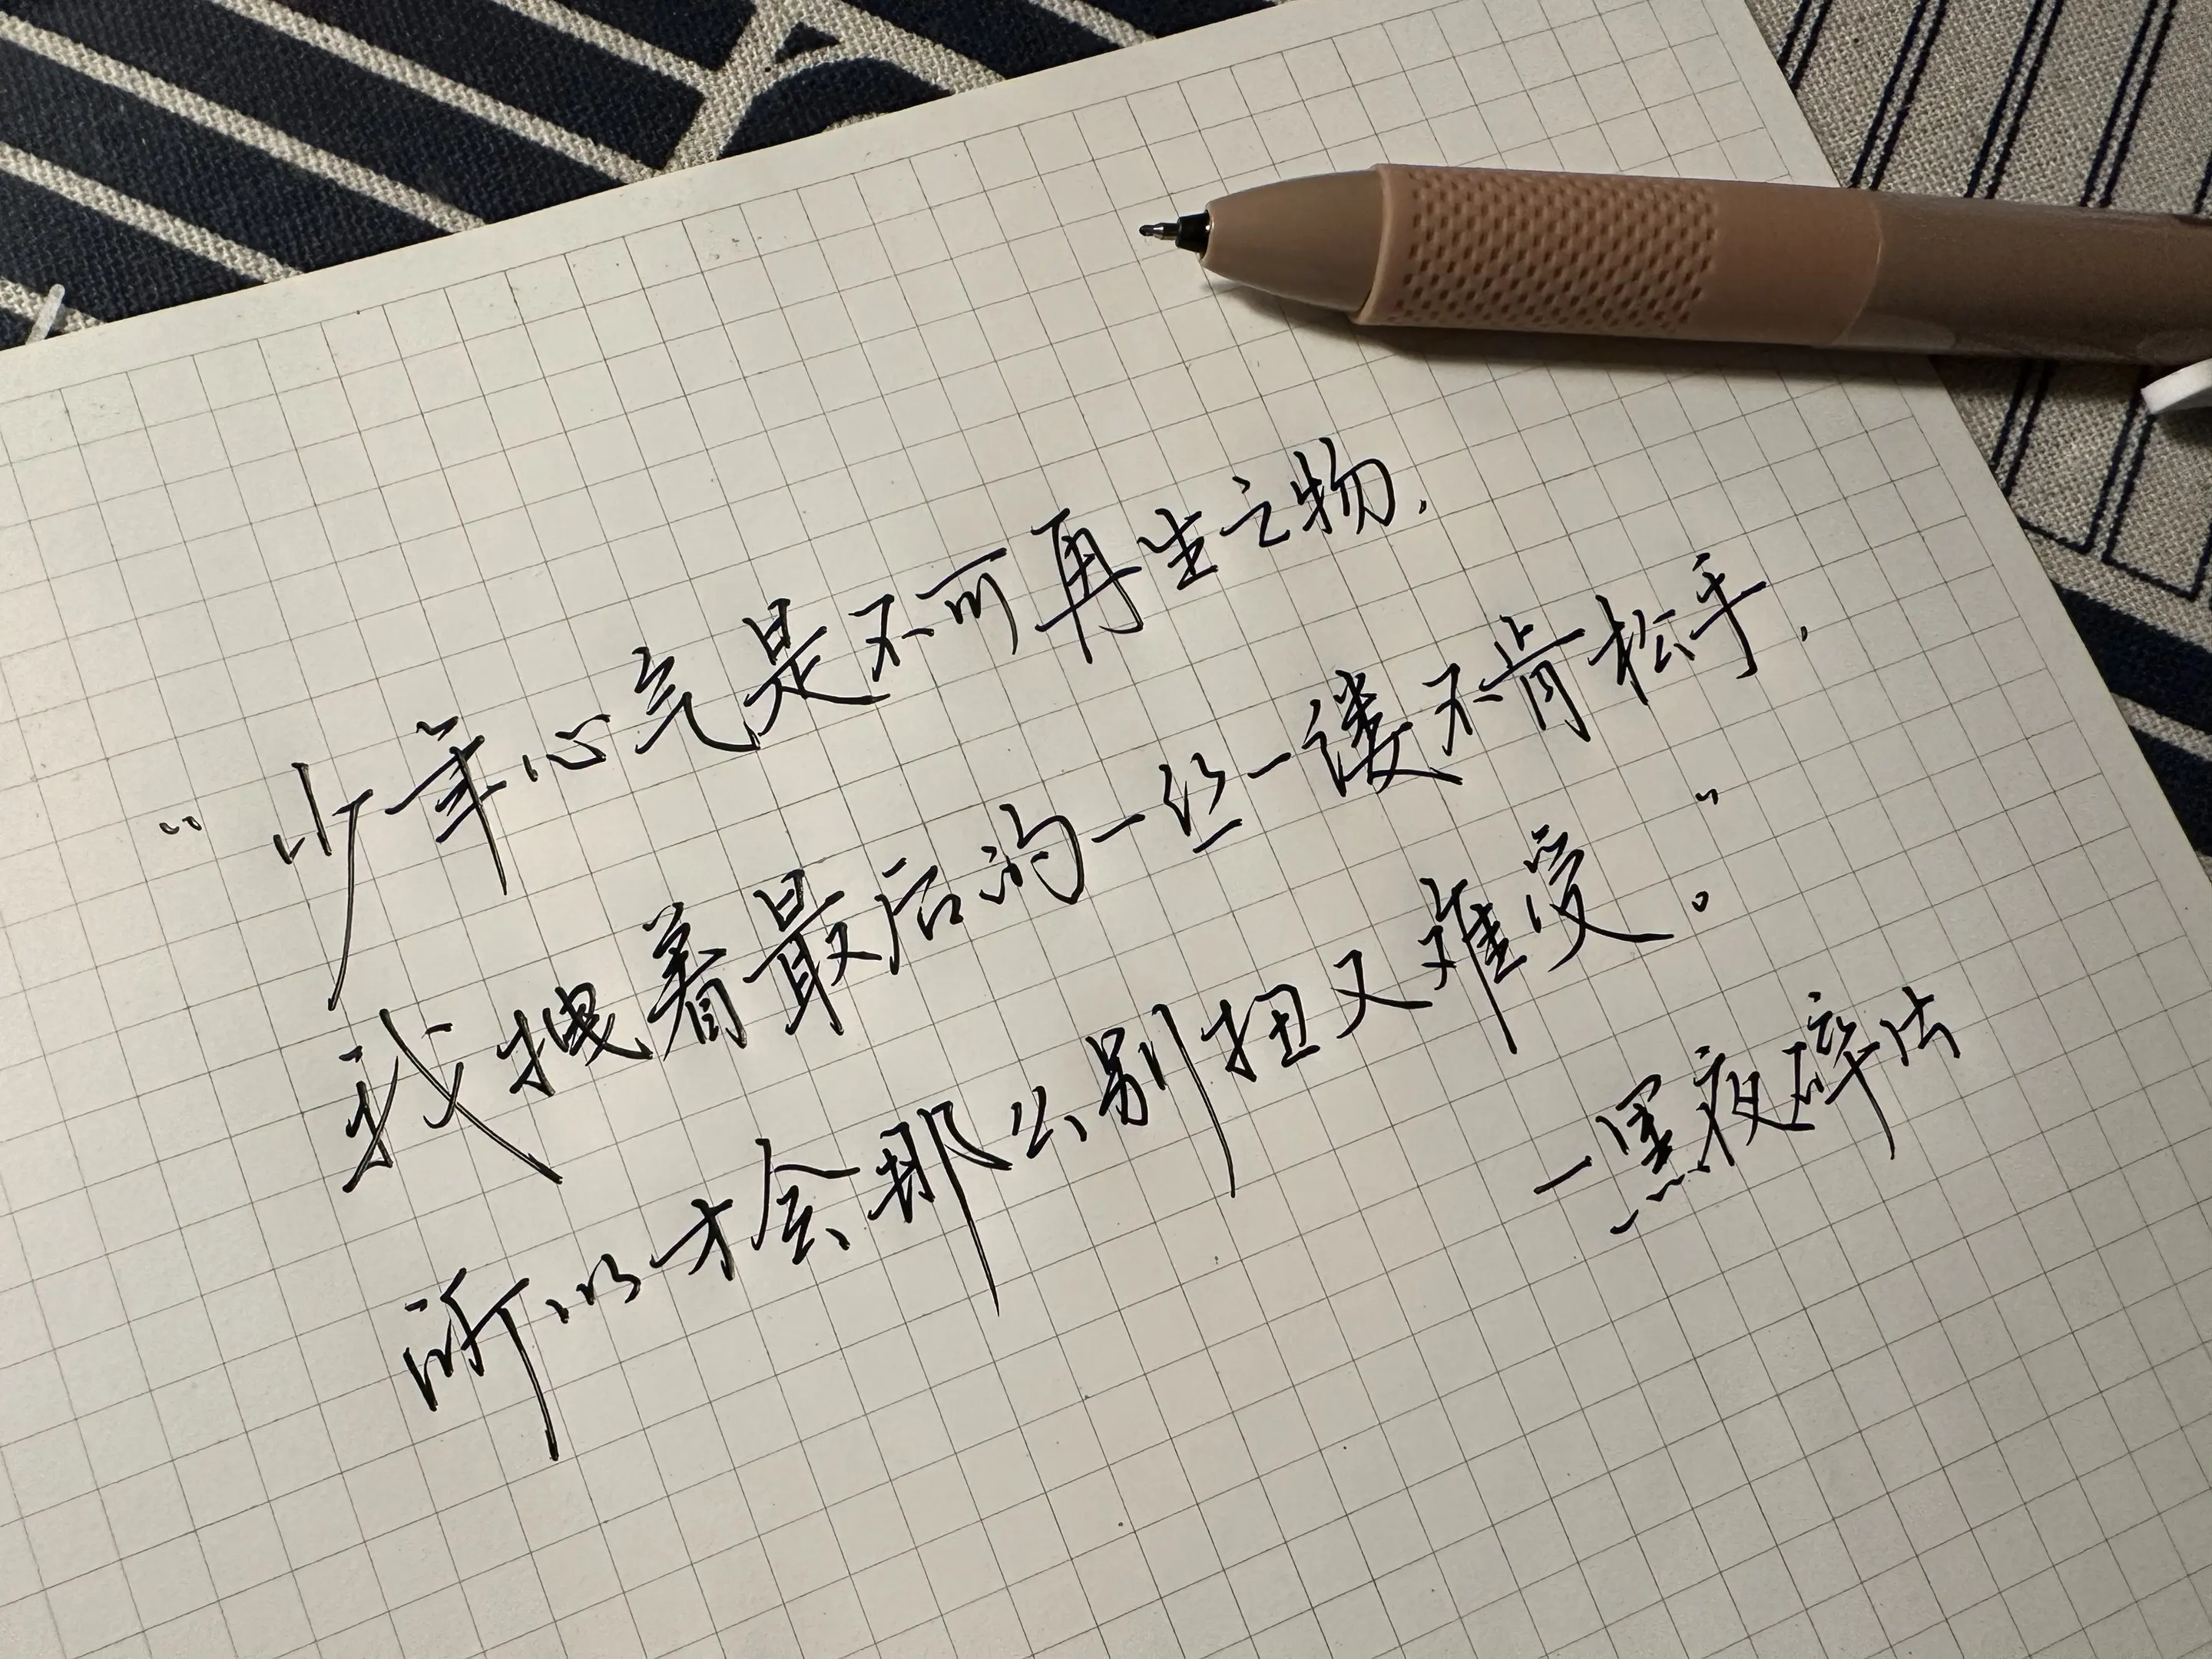 “少年心气是不可再生之物，
我拽着最后的一丝一缕不肯松手，
所以才会那么别扭又难受。”
—黑夜碎片